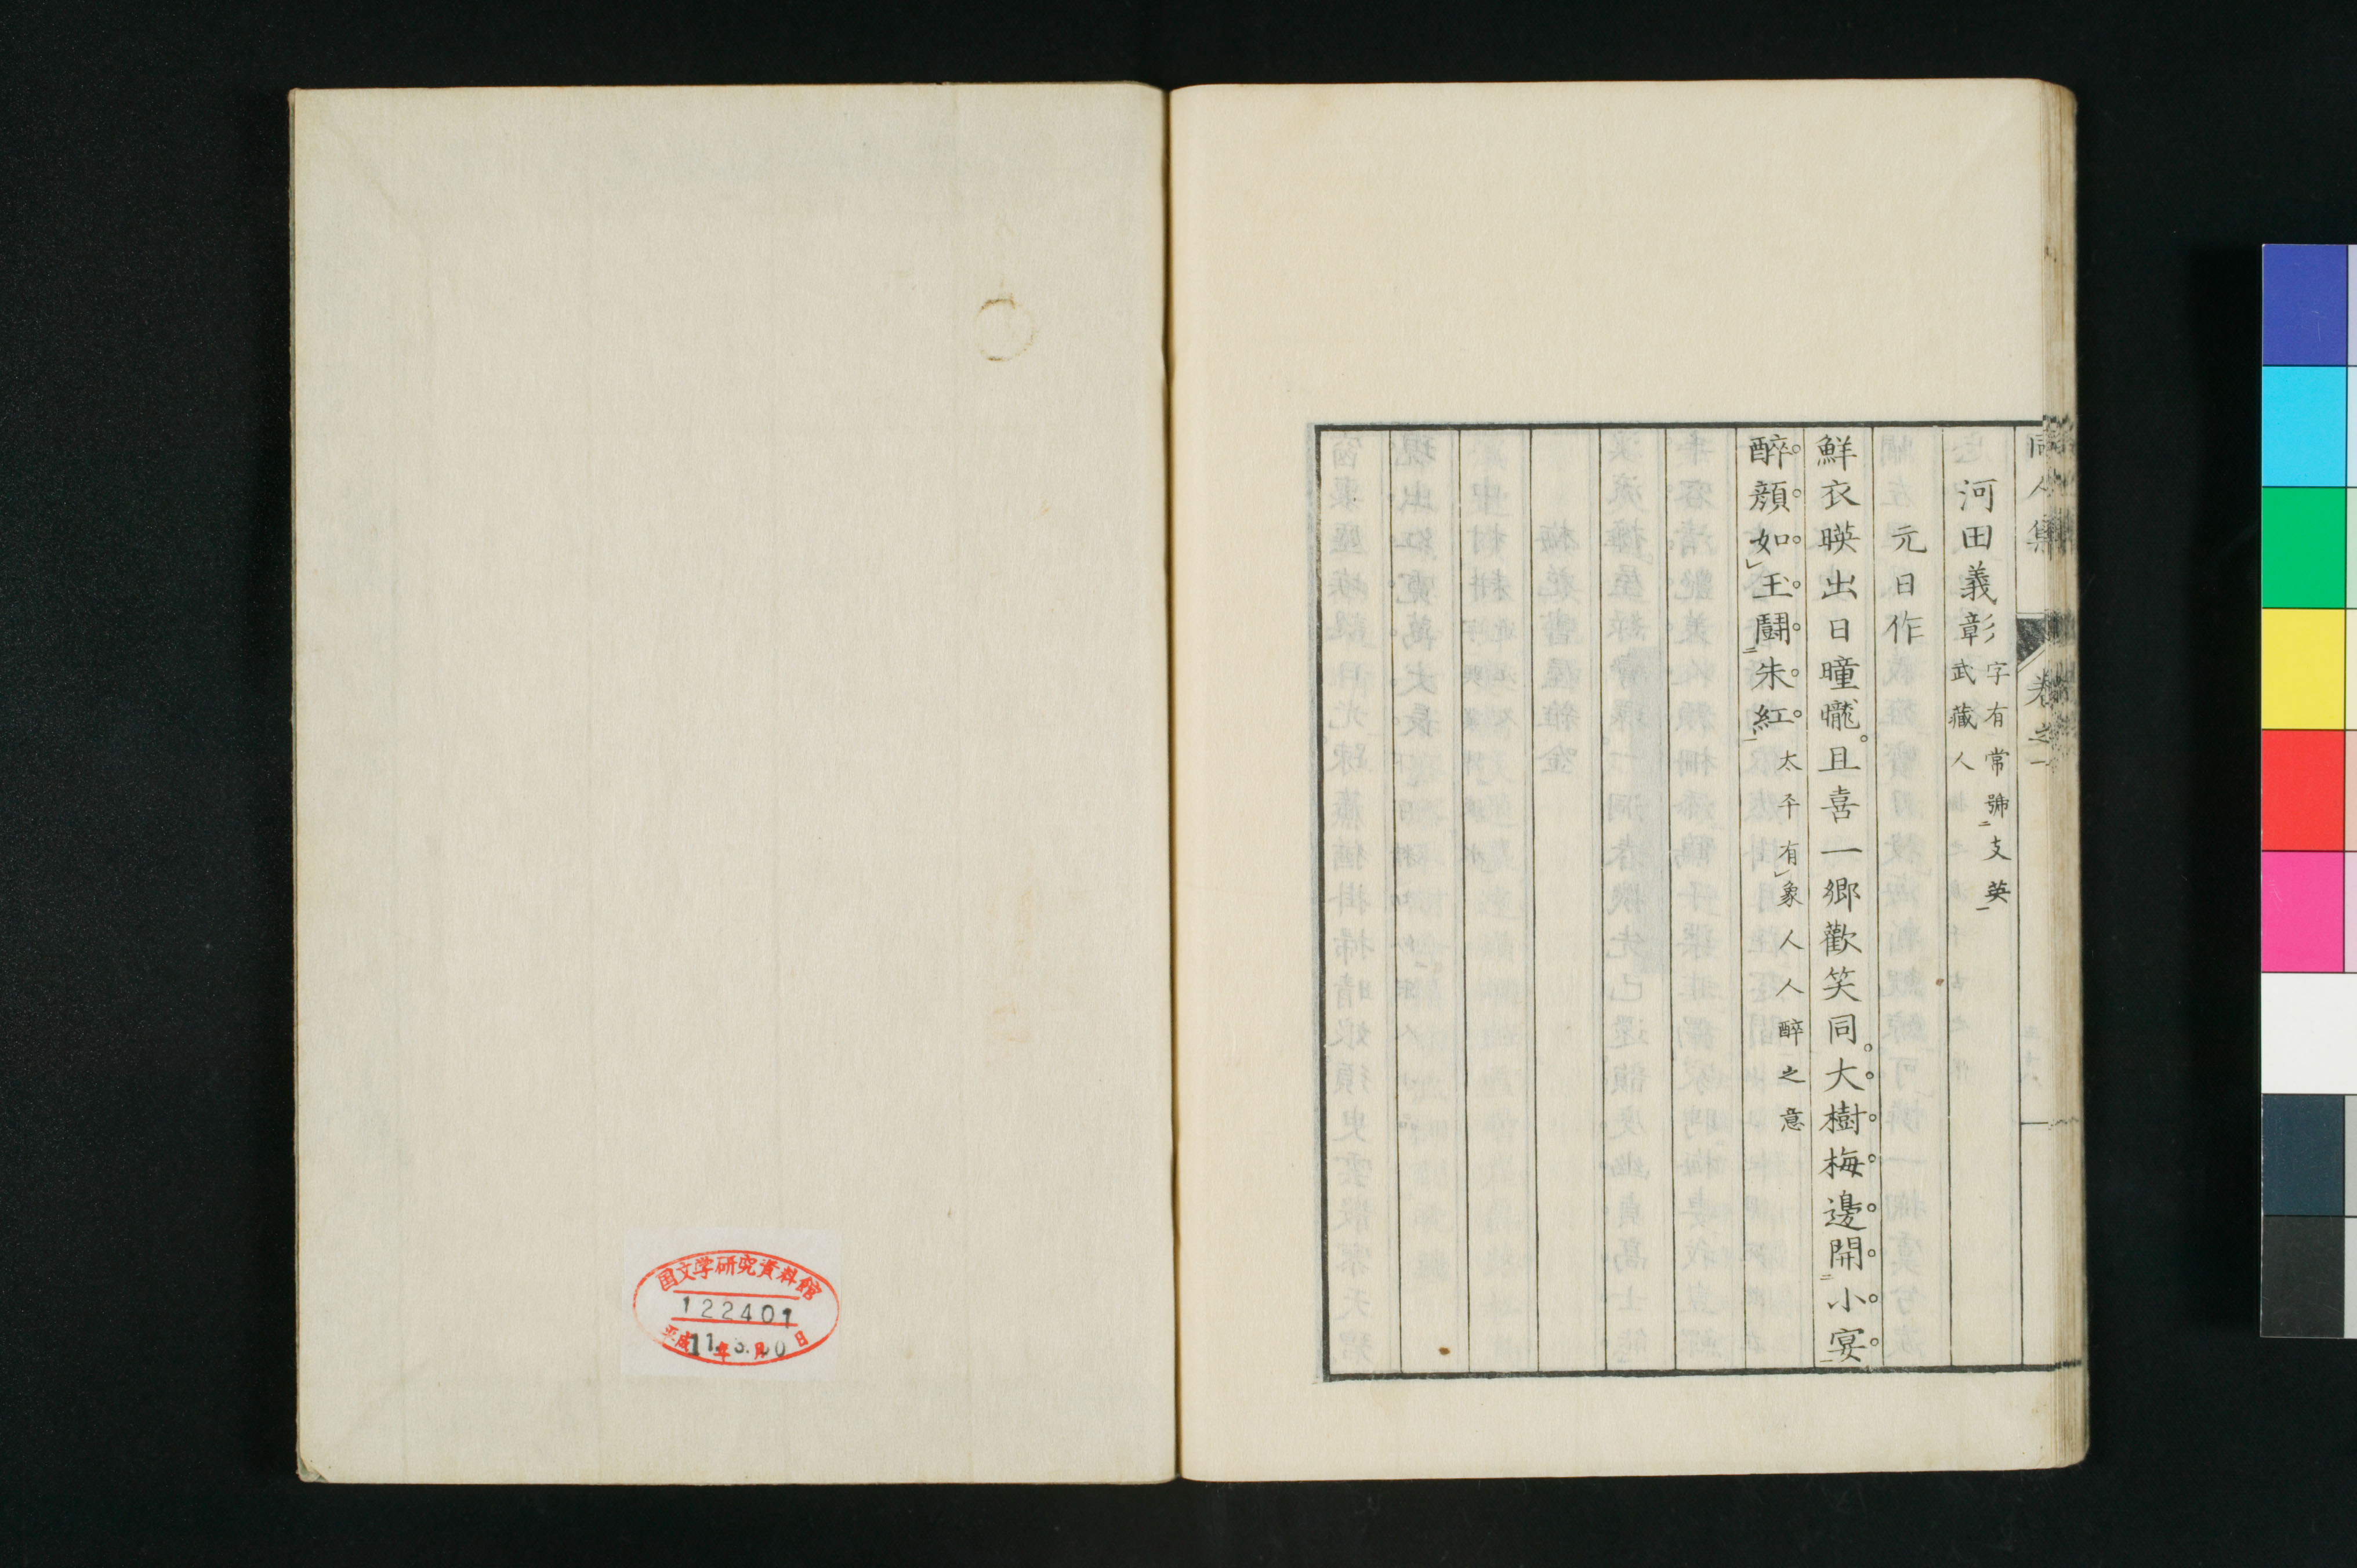 同人集 卷之一
河田義彰 字有常號支英
武藏人
元日作
鮮衣暎出日曈曨且喜一鄉歡笑同大樹梅邊開小宴
醉顏如玉鬪朱紅 太平有象人人醉之意
国文学研究資料館
122401
平成11年3.30月日